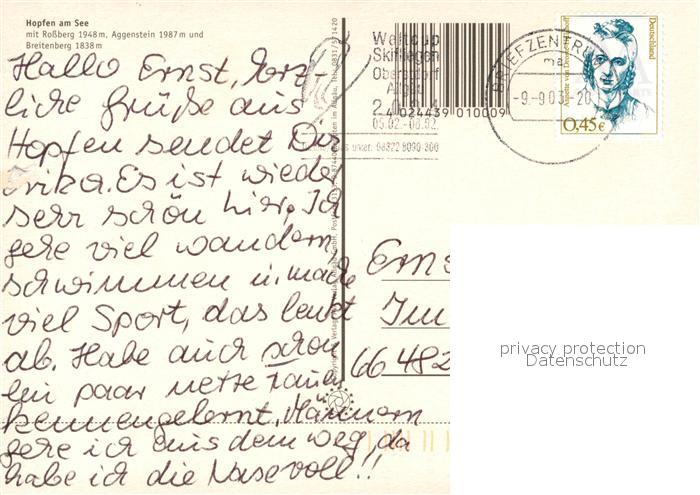 Hopfen am See
mit Roßberg 1948m, Aggenstein 1987m und
Breitenberg 1838m
Hallo Ernst, herz-
liche Grüße aus
Hopfen sendet Dir
Erika. Es ist wieder
sehr schön hier. Ich
gehe viel wandern,
schwimmen u. mache
viel Sport, das lenkt
ab. Habe auch schon
ein paar nette Frauen
kennengelernt, Männern
gehe ich aus dem weg, da
habe ich die Nase voll!!
Weltcup
Skifliegen
Oberstdorf
Allgäu
05.02.-08.02.
08322 8090-300
4 024439 010009
BRIEFZENTRUM
ma
-9.-9.03.-20
Annette von Droste-Hülshoff
Deutschland
0,45€
Erns
Im
66482
privacy protection
Datenschutz